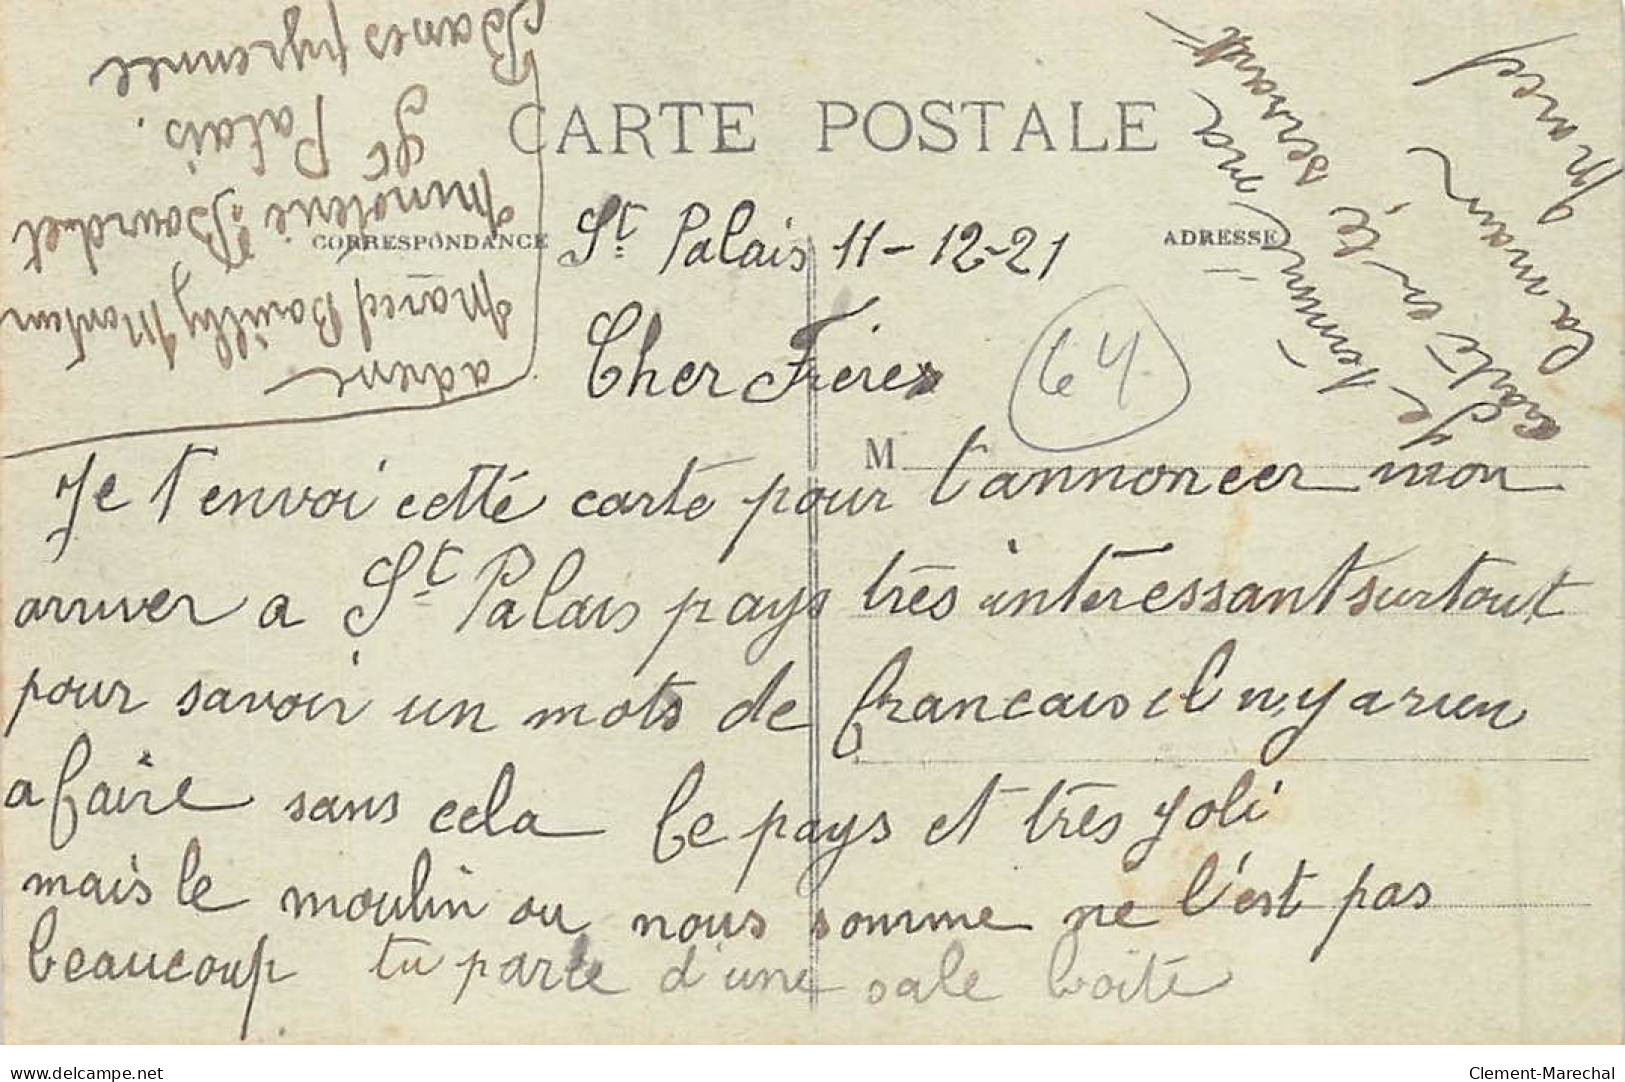 CARTE POSTALE
CORRESPONDANCE
ADRESSE
St Palais 11-12-21
Cher Frères
64
M
Je t'envoi cetté carte pour t'annoncer mon
arriver a St Palais pays très intéressant surtout
pour savoir un mots de francais il n,y a rien
a faire sans cela le pays et très joli
mais le moulin ou nous somme ne l'est pas
beaucoup tu parle d'une sale boîte
Je terminé ma
carté en té serrant
la main
Marcel
adresse
Marcel Bailly Monteur
Minoterie Bourdet
St Palais.
Basses pyrennée
www.delcampe.net
Clement-Marechal